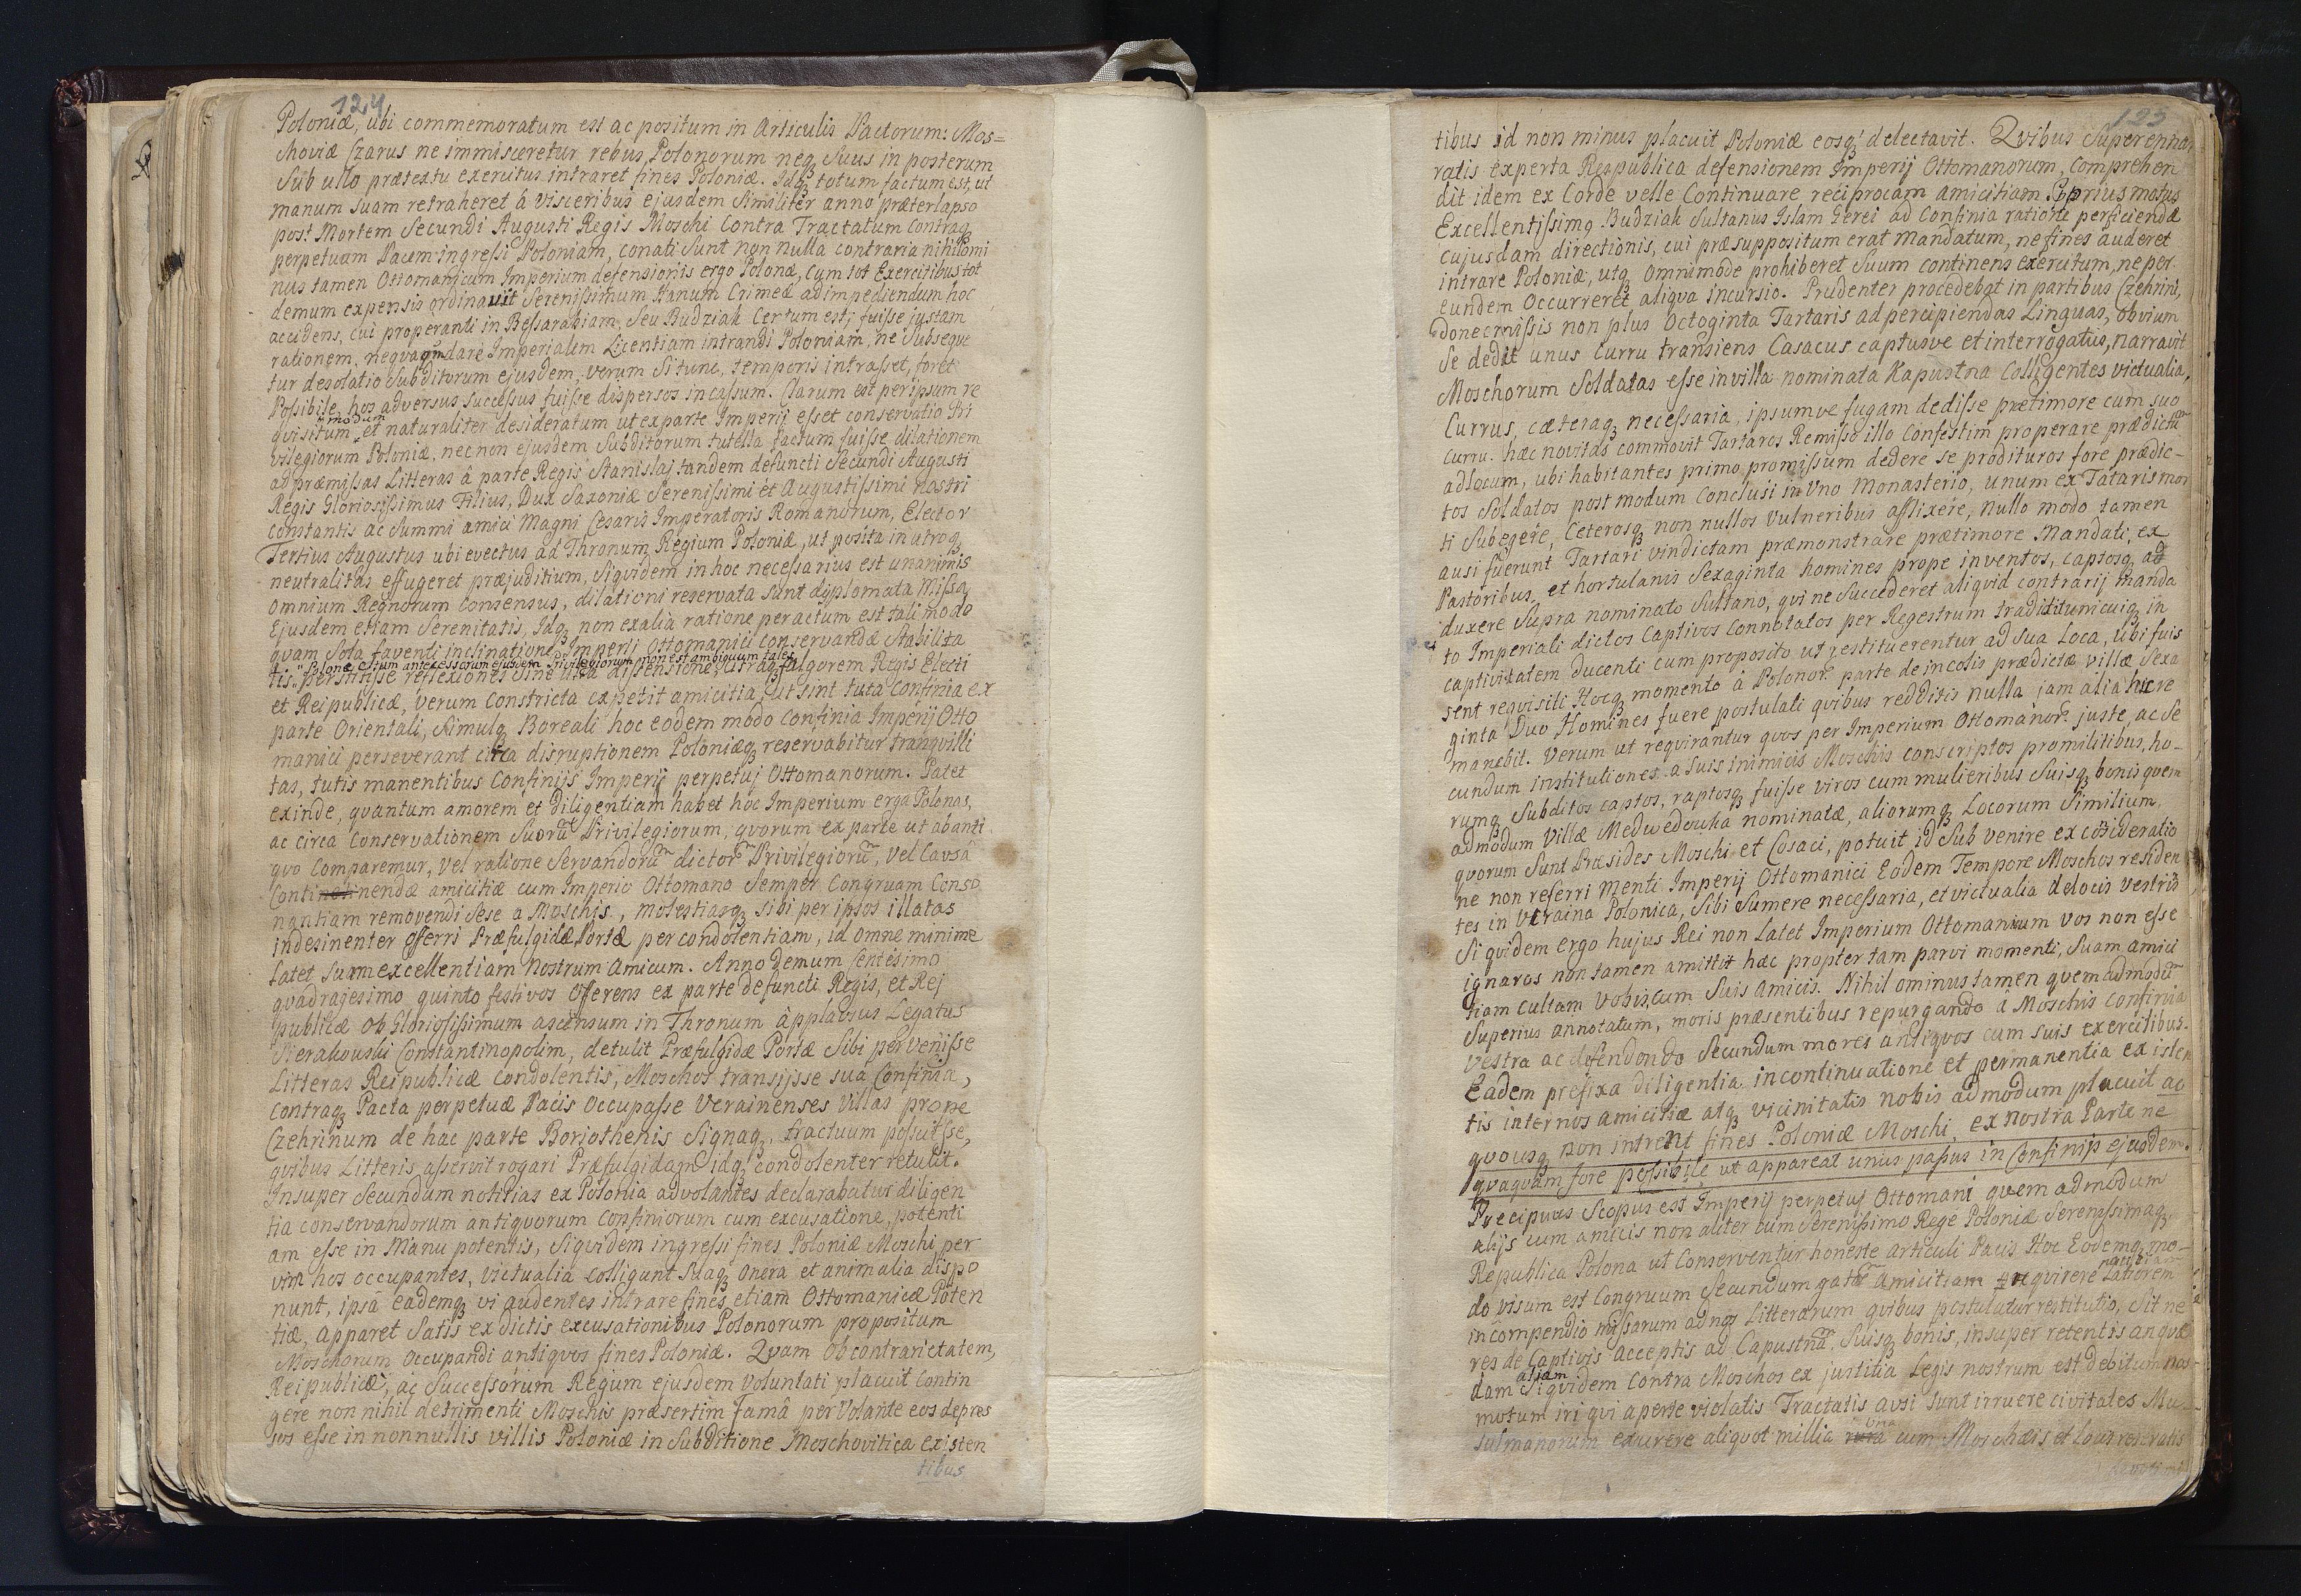 124
Poloniæ, ubi commemoratum est ac positum in Articulis Pactorum: Mos=
choviæ Czarus ne immisceretur rebus Polonorum neqꝫ Suus in posterum
Sub ullo prætextu exercitus intraret fines Poloniæ. Idqꝫ totum factum est, ut
manum suam retraheret â visceribus ejusdem Similiter anno præterlapso
post Mortem Secundi Augusti Regis Moschi Contra Tractatum Contraqꝫ
perpetuam Pacem ingressi Poloniam, conati Sunt non nulla contraria nihilomi
nus tamen Ottomanicum Imperium defensionis ergo Polonæ, Cum tot Exercitibus tot
demum expensis ordinavit Serenissimum Hanum Crimeæ ad impediendum hoc
accidens, cui properanti in Bessarabiam, Seu Budziak Certum est; fuisse justam
rationem, neqvaqm dare Imperialem Licentiam intrandi Poloniam, ne Subseqve
tur desolatio Subditorum ejusdem, verum Si tunc, temporis intrasset, foret
Possibile, hos adversus successus fuisse dispersos in casum. Clarum est per ipsum re
qvisitum et naturaliter desideratum ut ex parte Imperij esset conservatio Pri
vilegiorum Poloniæ, nec non ejusdem Subditorum tutella factum fuisse dilationem
ad præmissas Litteras â parte Regis Stanislaj tandem defuncti Secundi Augusti
Regis Gloriosissimus Filius, Dux Saxoniæ Serenissimi et Augustissimi nostri
constantis ac Summi amici Magni Cesaris Imperatoris Romanorum, Elector
Tertius Augustus ubi evectus ad Thronum Regium Poloniæ, ut posita in utroqꝫ
neutralitas effugeret præjuditium, Siqvidem in hoc necessarius est unanimis
omnium Regnorum Consensus, dilationi reservata sunt dyplomata Missa
Ejusdem etiam Serenitatis, Idqꝫ non ex alia ratione peractum est tali modo
qvam Sola faventi inclinatione Imperij Ottomanici conservandæ Stabilita
tis Polonæ etium antecessorum ejusdem Privilegiorum, non est ambiguum tales
perstitisse reflexiones Sine ulla dispensione, Citraqꝫ fulgorem Regis Electi
et Reipublicæ, verum Constricta expetit amicitia, ut sint tuta Confinia ex
parte Orientali, Simulqꝫ Boreali hoc eodem modo Confinia Imperij Otto
manici perseverant citra disruptionem Poloniæqꝫ reservabitur tranqvilli
tas, tutis manentibus Confinijs Imperij perpetuj Ottomanorum. Patet
exinde, qvantum amorem et Diligentiam habet hoc Imperium erga Polonos,
ac circa Conservationem Suorũ Privilegiorum, qvorum ex parte ut ab anti
qvo Comparemur, vel ratione Servandorũ dictorũ Privilegiorũ, vel Causâ
Continendæ amicitiæ cum Imperio Ottomano Semper Congruam Conso
nantiam removendi Sese a Moschis, molestiasqꝫ sibi per ipsos illatas
indesinenter Offerri Præfulgidæ Portæ per condolentiam, id omne minime
Latet Suam excellentiam Nostrum Amicum. Anno demum Centesimo
qvadragesimo qvinto festivos Offerens ex parte defuncti Regis, et Rej
publicæ ob Gloriosissimum ascensum in Thronum âpplausus Legatus
Sierakouski Constantinopolim, detulit Præfulgidæ Portæ Sibi pervenisse
Litteras Reipublicæ Condolentis, Moschos transijsse sua Confinia,
contraqꝫ Pacta perpetuæ Pacis Occupasse Vcrainenses Villas prope
Czehrinum de hac parte Boristhenis Signaqꝫ tractuum posuisse,
qvibus Litteris asservit rogari Præfulgidam idqꝫ condolenter retulit.
Insuper Secundum notitias ex Polonia advolantes declarabatur diligen
tia conservandorum antiqvorum Confiniorum cum excusatione, potenti
am esse in Manu potentis, Siqvidem ingressi fines Poloniæ Moschi per
vim hos occupantes, Victualia colligunt Suaqꝫ onera et animalia dispo
nunt, ipsâ eademqꝫ vi audentes intrare fines etiam Ottomanicæ Poten
tiæ, apparet Satis ex dictis excusationibus Polonorum propositum
Moschorum Occupandi antiqvos fines Poloniæ. Qvam Ob contrarietatem,
Reipublicæ, ac Successorum Regum ejusdem Voluntati placuit Contin
gere non nihil detrimenti Moschis præsertim famâ per Volante eos depres
sos esse in nonnullis villis Poloniæ in Subditione Moschovitica existen
tibus
125
tibus id non minus placuit Poloniæ eosqꝫ delectavit. Qvibus Superenno
ratis experta Respublica defensionem Imperij Ottomanorum, comprehen
dit idem ex Corde velle Continuare reciprocam amicitiam. Prius motus
Excellentissimꝰ Budziak Sultanus Islam Gerei ad Confinia ratione perficiendæ
cujusdam directionis, cui præsuppositum erat Mandatum, ne fines auderet
intrare Poloniæ, utqꝫ omnimode prohiberet Suum continens exercitum, ne per
eundem Occurreret aliqva incursio. Prudenter procedebat in partibus Czehrini,
donec missis non plus Octoginta Tartaris ad percipiendas Linguas, obvium
Se dedit unus Curru transiens Casacus captusve et interrogatus, narravit
Moschorum Soldatas esse in villa nominata Kapustna Colligentes victualia,
Currus, cæteraqꝫ necessaria, ipsumve fugam dedisse præ timore cum suo
Curru. hæc novitas commovit Tartaros Remisso illo Confestim properare prædictũ
ad locum, ubi habitantes primo promissum dedere se prodituros fore prædic-
tos Soldatos post modum Conclusi in Uno Monasterio, unum ex Tataris mor
ti Subegêre, Ceterosqꝫ non nullos vulneribus afflixêre, nullo modo tamen
ausi fuerunt Tartari vindictam præmonstrare præ timore Mandati, ex
Pastoribus et hortulanis Sexaginta homines prope inventos, captosqꝫ ad
duxere Supra nominato Sultano, qvi ne Succederet aliqvid contrarij manda
to Imperiali dictos Captivos Connotatos per Regestrum tradidit unicuiqꝫ in
captivitatem ducenti cum proposito ut restituerentur ad Sua Loca, ubi fuis
sent reqvisiti Hocqꝫ momento â Polonorũ parte de incolis prædictæ villæ Sexa
ginta Duo Homines fuere postulati qvibus redditis nulla jam alia hic re
manebit. Verum ut reqvirantur qvos per Imperium Ottomanorũ juste, ac Se
cundum institutiones a suis inimicis Moschis conscriptos pro militibus, ho-
rumqꝫ Subditos captos, raptosqꝫ fuisse viros cum mulieribus Suisqꝫ bonis qvem
admodum Villæ Medwedouka nominatæ, aliorumqꝫ Locorum Similium,
qvorum Sunt Præsides Moschi et Cosaci, potuit id Sub venire ex cõsideratio
ne non referri menti Imperij Ottomanici Eodem Tempore Moschos residen
tes in Vcraina Polonica, Sibi Sumere necessaria, et victualia de locis vestris
Siqvidem ergo hujus Rei non Latet Imperium Ottomanicum vos non esse
ignaros non tamen amittit hæc propter tam parvi momenti, Suam amici
tiam Cultam Vobiscum Suis Amicis. Nihil ominus tamen qvemadmodũ
Superius annotatum, moris præsentibus repurgando â Moschis Confinia
vestra ac defendendo Secundum mores antiqvos cum suis exercitibus.
Eadem prefixa diligentia in continuatione et permanentia existen
tis inter nos amicitiæ atqꝫ vicinitatis nobis admodum placuit ac
qvousqꝫ non intrent fines Poloniæ Moschi, ex nostra Parte ne
qvaqvam fore possibile ut appareat unius passus in Confinijs ejusdem.
Præcipuus Scopus est Imperij perpetuj Ottomani qvem admodum
alijs cum amicis non aliter cum Serenissimo Rege Poloniæ Serenissimaqꝫ
Republica Polona ut Conserventur honeste articuli Pacis Hoc Eodemqꝫ mo-
do visum est Congruum Secundum ratã amicitiam reqvirere Latiorem
in compendio missarum ad nos Litterarum qvibus postulatur restitutio, Sit ne
res de Captivis acceptis ad Capustnã, Suisqꝫ bonis, insuper retentis an qvæ
dam aliam Siqvidem Contra Moschos ex justitia Legis nostrum est debitum nos
motum iri qvi aperte violatis Tractatis ausi sunt irruere civitates Mu
sulmanorum exurere aliqvot millia una cum Moschæis et Locis